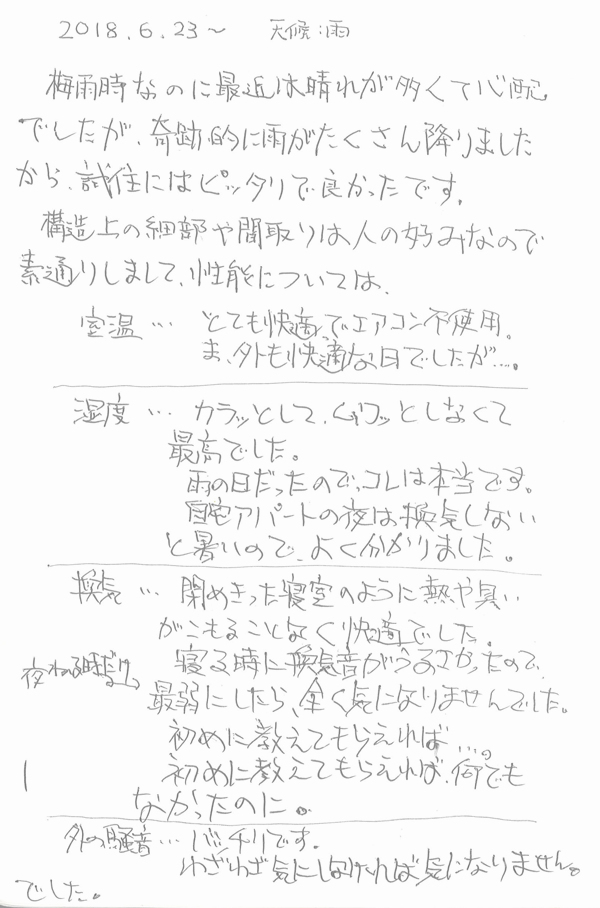 2018.6.23～　天候:雨
梅雨時なのに最近は晴れが多くて心配
でしたが、奇跡的に雨がたくさん降りました
から、試住にはピッタリで良かったです。
構造上の細部や間取りは人の好みなので
素通りしまして、性能については、
室温… とても快適でエアコン不使用。
ま、外も快適な日でしたが…。
湿度… カラッとして、ムワッとしなくて
最高でした。
雨の日だったので、コレは本当です。
自宅アパートの夜は換気しない
と暑いので、よく分かりました。
換気… 閉めきった寝室のように熱や臭い
がこもることなく快適でした。
寝る時に換気音がうるさかったので、
夜ねる時だけ
最弱にしたら、全く気になりませんでした。
初めに教えてもらえれば…。
初めに教えてもらえれば、何でも
なかったのに。
外の騒音… バッチリです。
わざわざ気にしなければ気になりません。
でした。